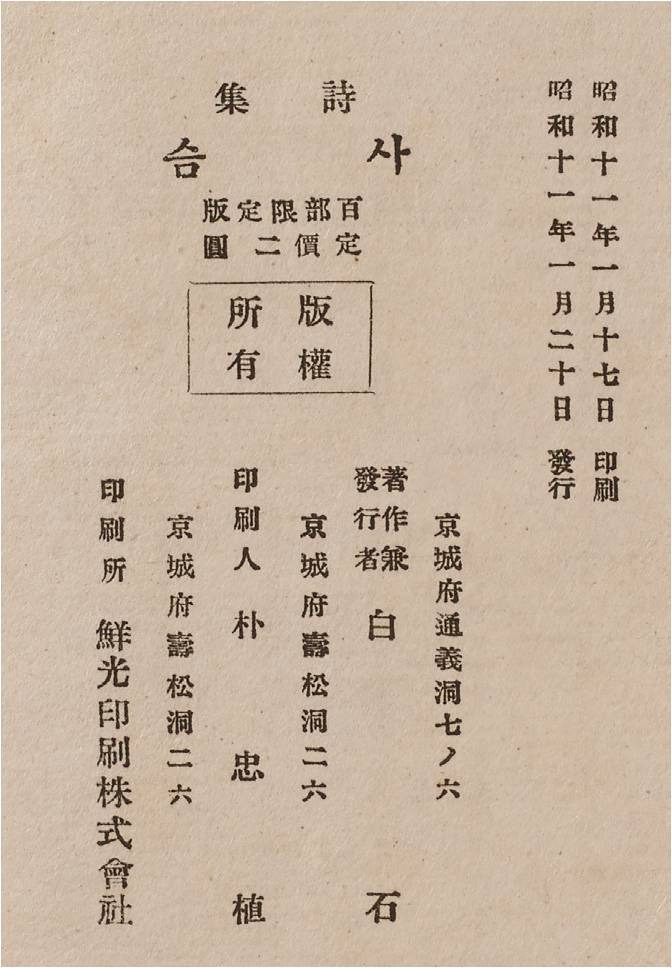 昭和十一年一月十七日 印刷
昭和十一年一月二十日 發行
詩集
사슴
百部限定版
定價二圓
版權
所有
京城府通義洞七ノ六
著作兼
發行者 白石
京城府壽松洞二六
印刷人 朴忠植
京城府壽松洞二六
印刷所 鮮光印刷株式會社